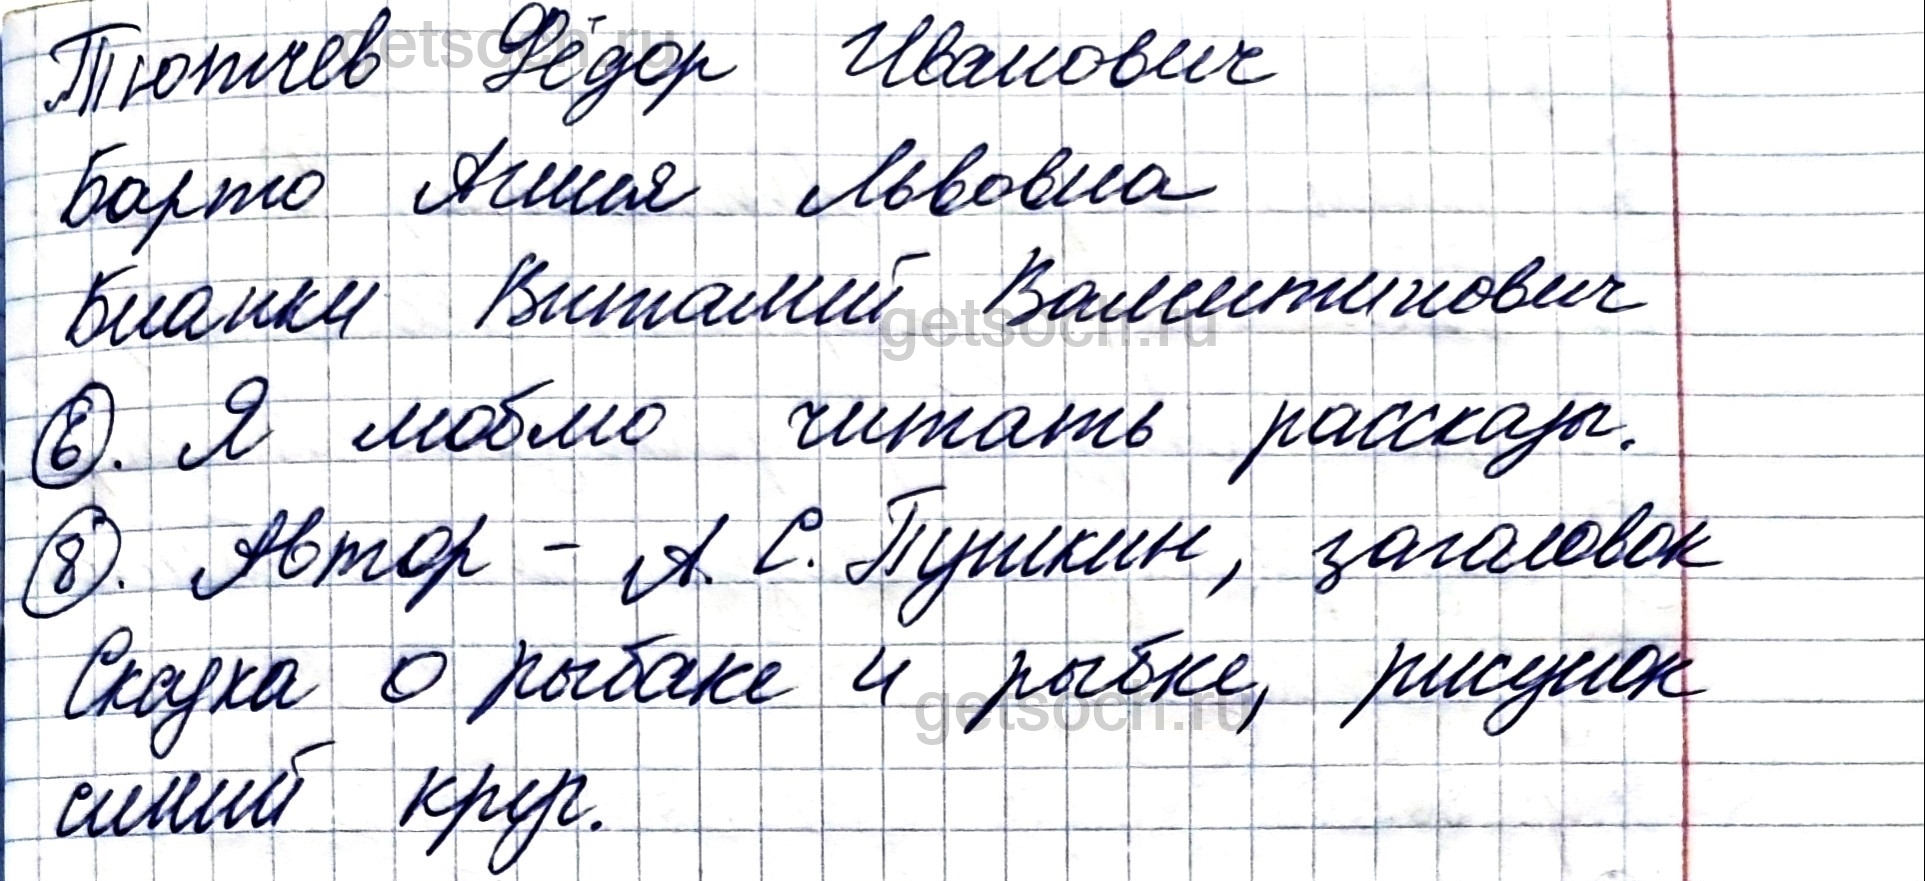 Тютчев Фёдор Иванович
Барто Агния Львовна
Бианки Виталий Валентинович
6. Я люблю читать рассказы.
8. Автор - А. С. Пушкин, заголовок
Сказка о рыбаке и рыбке, рисунок
синий круг.
getsoch.ru
getsoch.ru
getsoch.ru